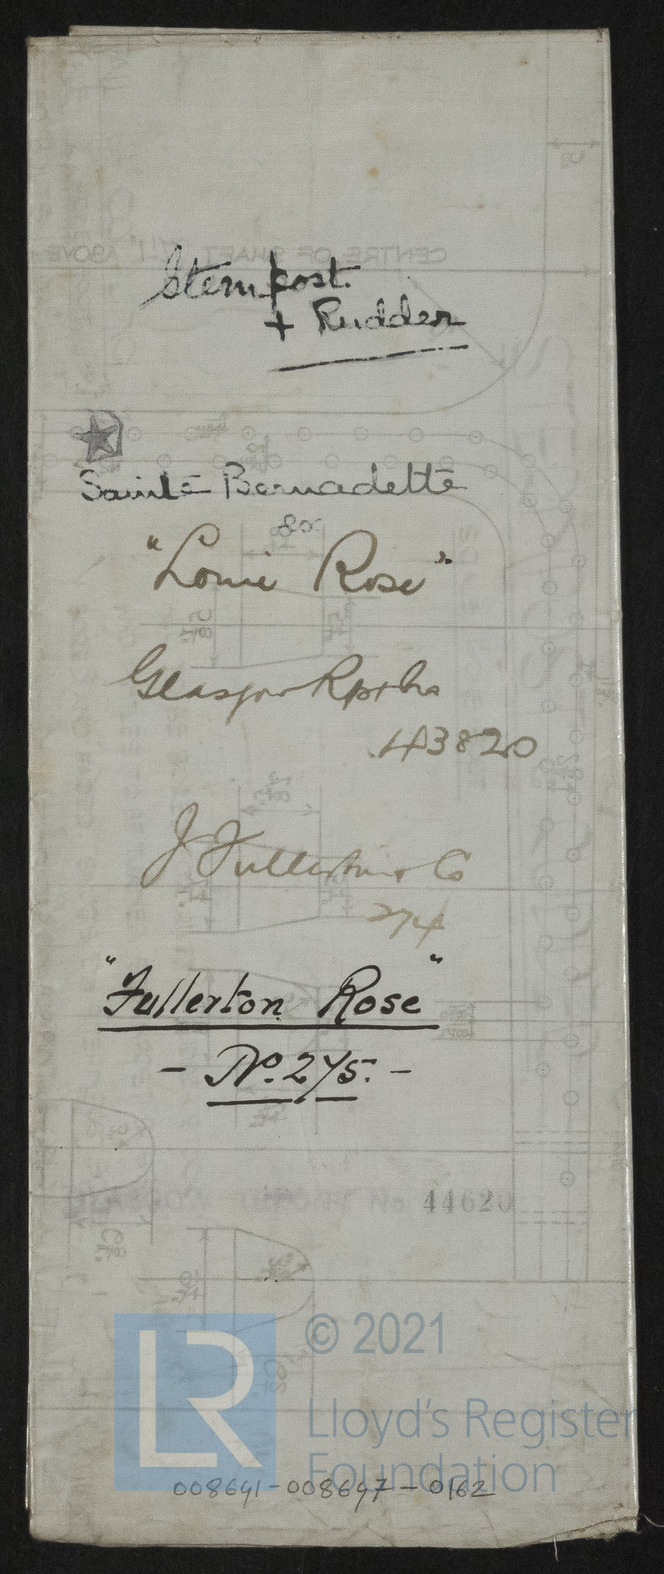 Sternpost
+ Rudder
Sainte Bernadette
ex
"Louie Rose"
Glasgow Rpt No
43820
J Fullerton & Co
274
"Fullerton Rose"
- No. 275. -
GLASGOW REPORT No. 44620
© 2021
Lloyd's Register
Foundation
008641-008647-0162